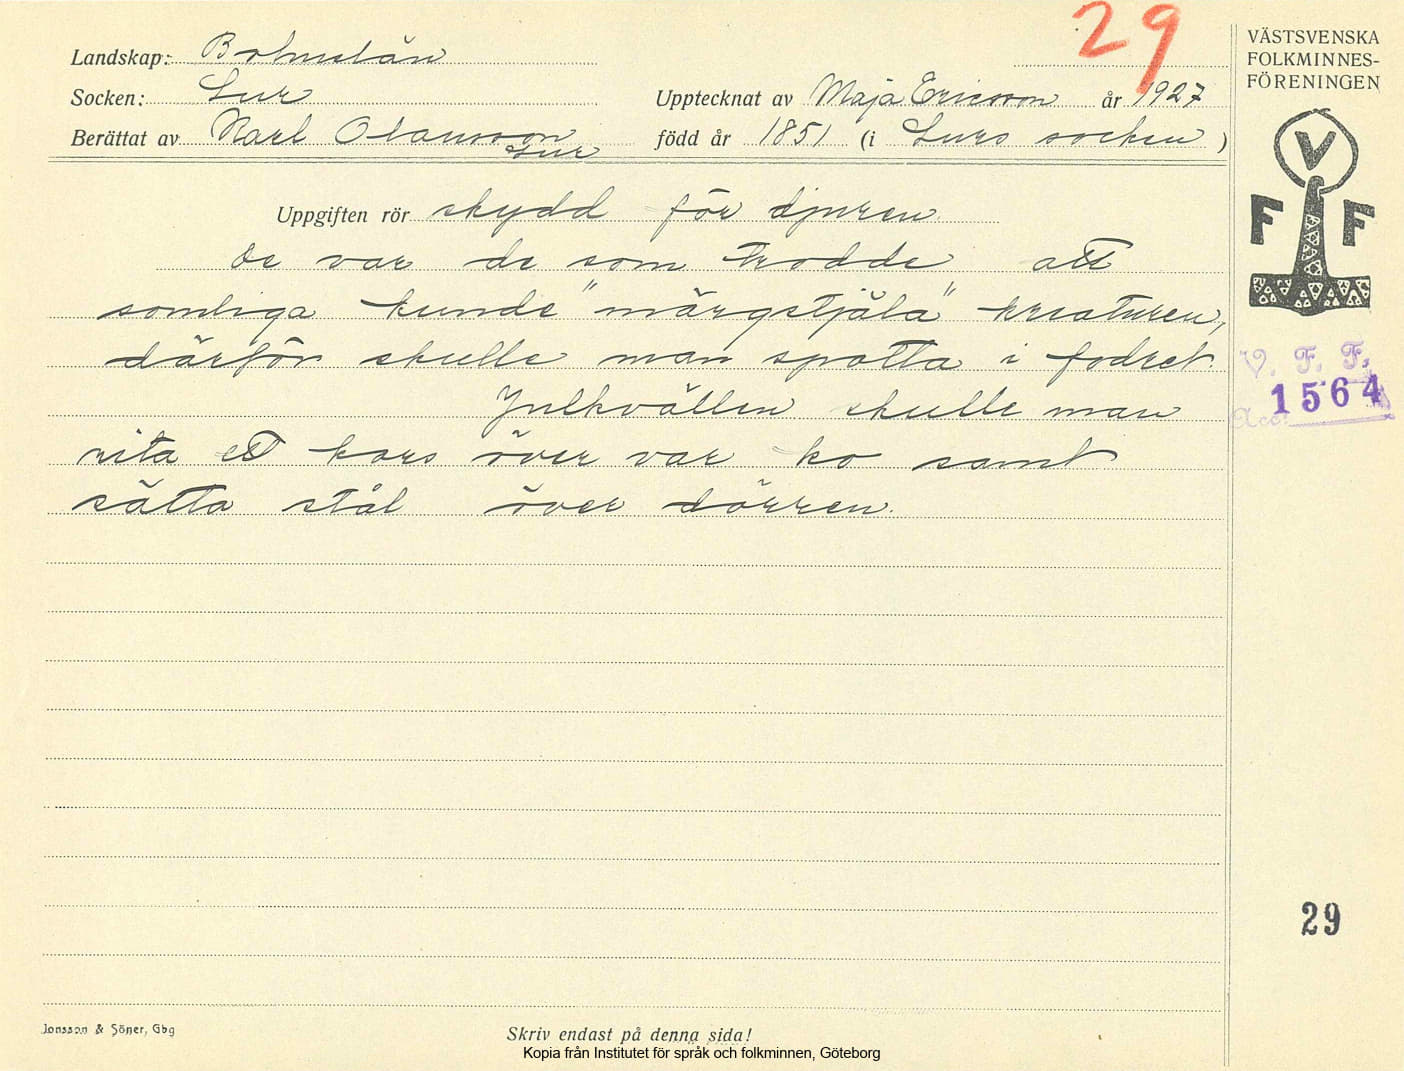 29
Landskap: Bohuslän
Socken: Lur
Upptecknat av Maja Ericsson år 1927
Berättat av Karl Olausson Lur
född år 1851 (i Lurs socken)
Uppgiften rör skydd för djuren.
De var de som trodde att
somliga kunde "märgstjäla" kreaturen,
därför skulle man spotta i fodret.
Julkvällen skulle man
rita ett kors över var ko samt
sätta stål över dörren.
VÄSTSVENSKA
FOLKMINNES-
FÖRENINGEN
V
F F
V. F. F.
1564
Acc.
29
Jonsson & Söner, Gbg
Skriv endast på denna sida!
Kopia från Institutet för språk och folkminnen, Göteborg